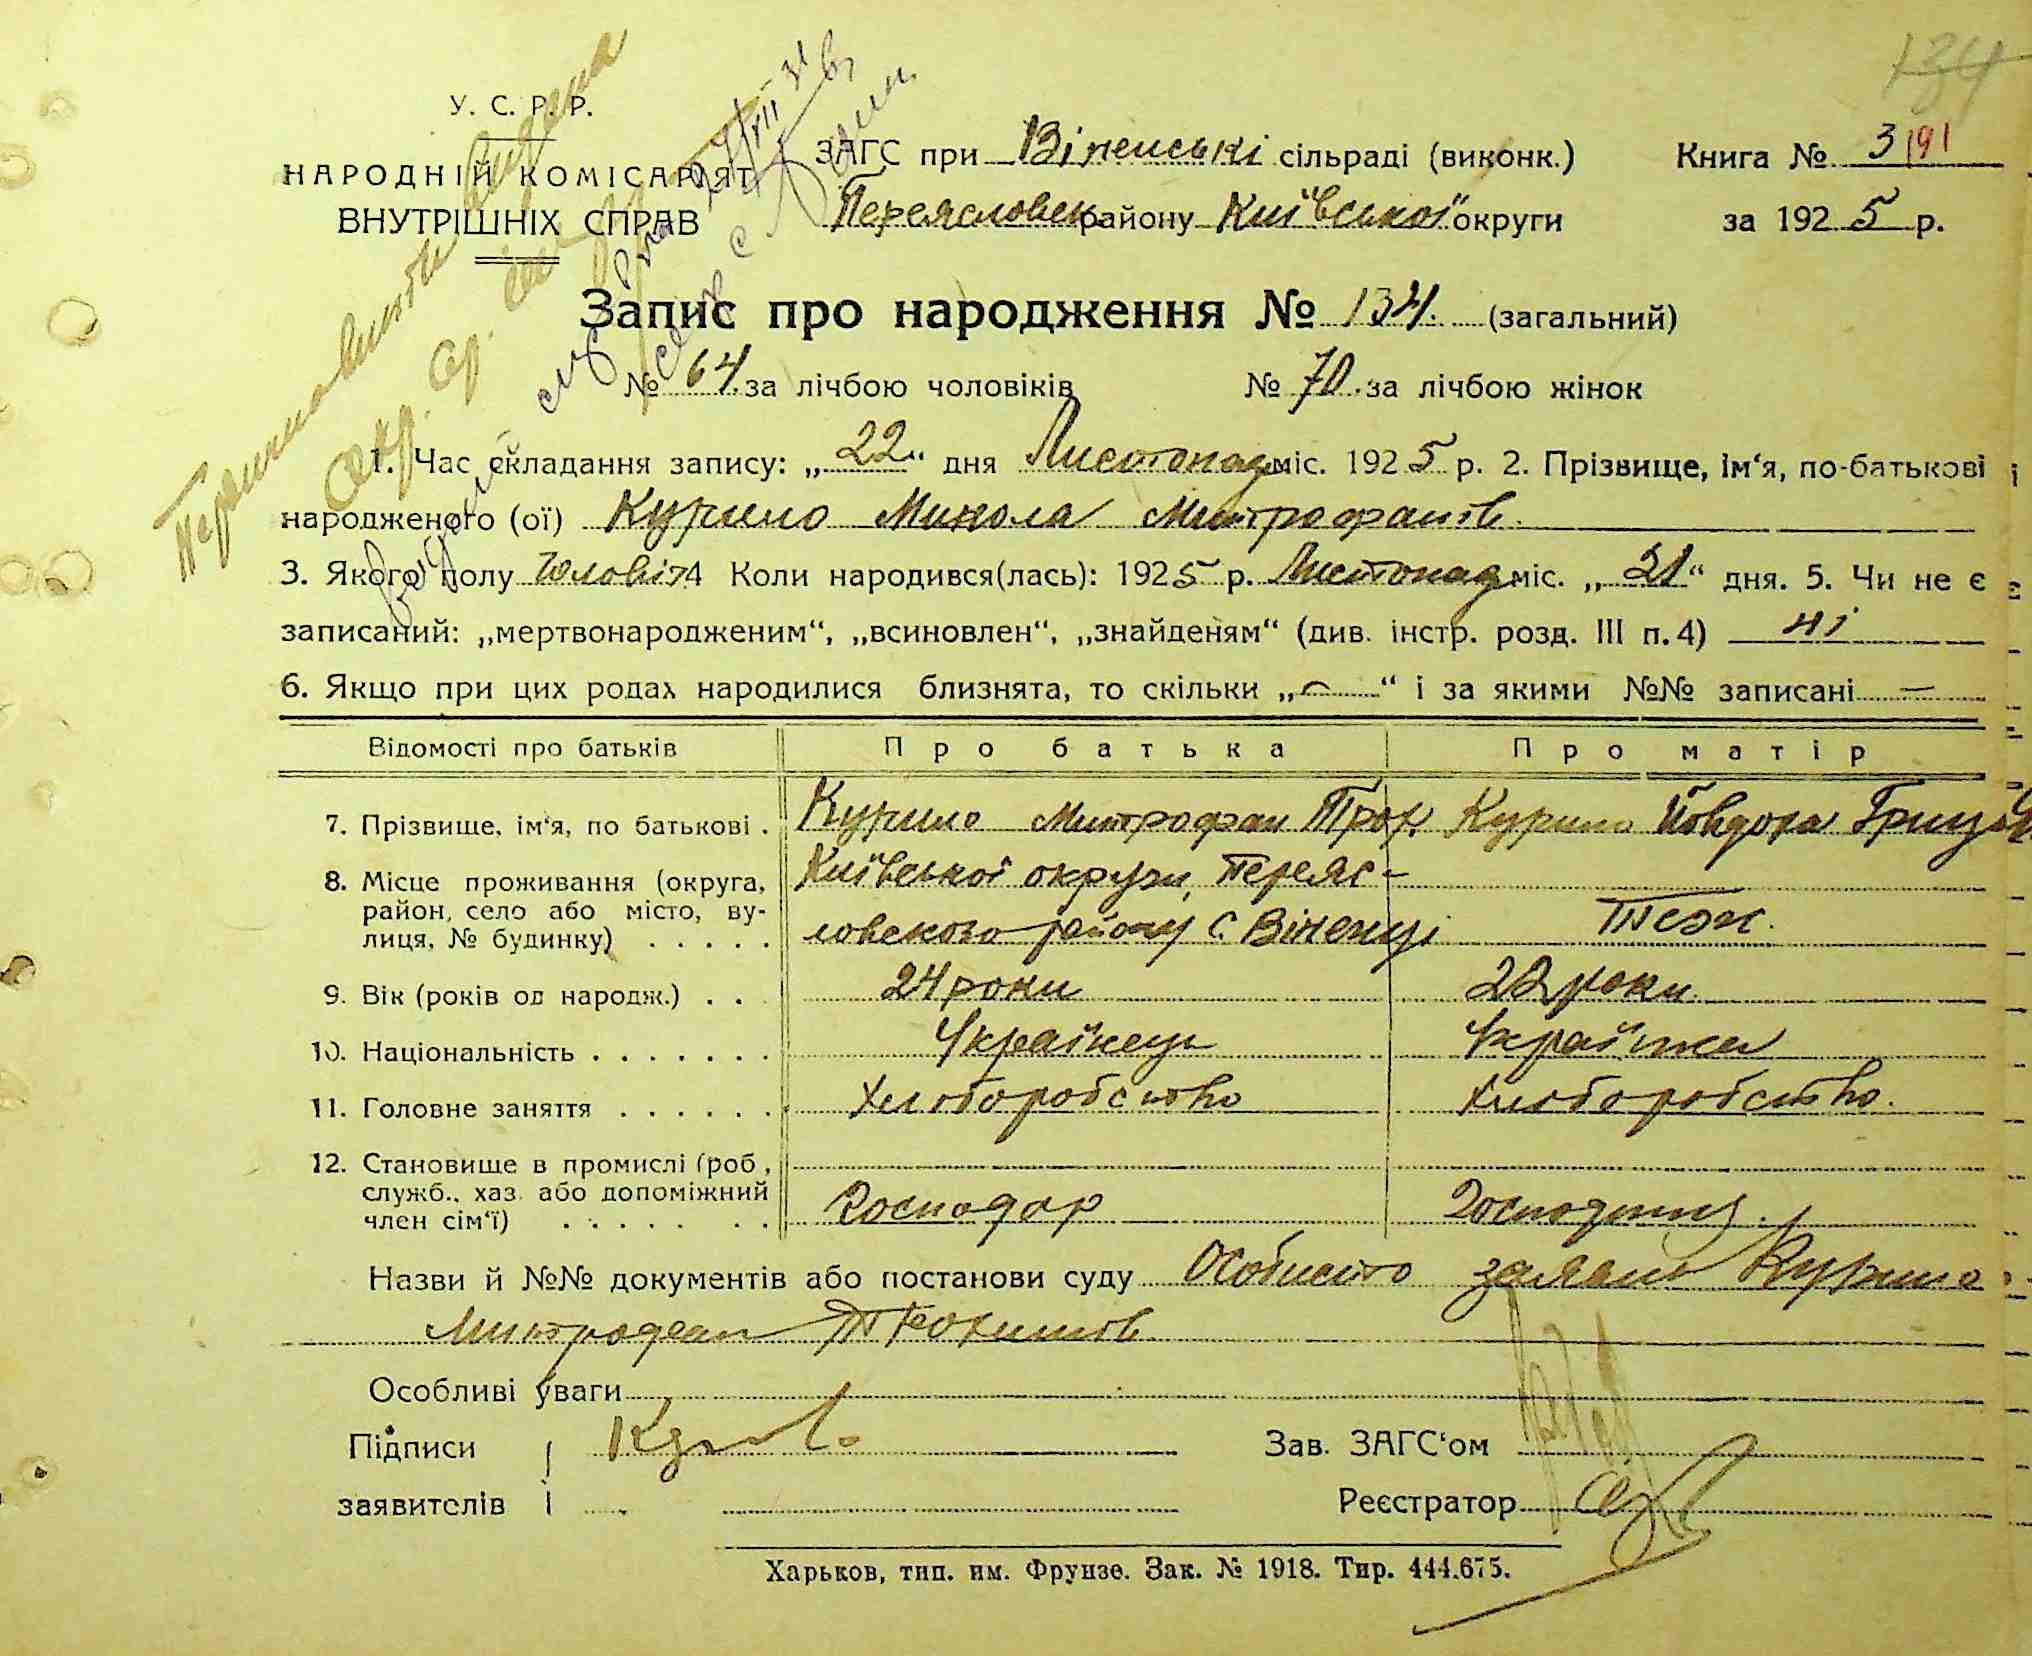 134
У. С. Р. Р.
НАРОДНІЙ КОМІСАРІЯТ
ВНУТРІШНІХ СПРАВ
ЗАГС при Віненські сільраді (виконк.)
Переясловськ. району Київської округи
Книга № 3 191
за 1925 р.
Запис про народження № 134. (загальний)
№ 64. за лічбою чоловіків № 70. за лічбою жінок
1. Час складання запису: „22“ дня Листопад міс. 1925 р. 2. Прізвище, ім‘я, по-батькові
народженого (ої) Курило Микола Митрофанів.
3. Якого полу Чоловіч 4 Коли народився(лась): 1925 р. Листопад міс. „21“ дня. 5. Чи не є
записаний: „мертвонародженим“, „всиновлен“, „знайденям“ (див. інстр. розд. III п. 4) ні
6. Якщо при цих родах народилися близнята, то скільки „—“ і за якими №№ записані —
Відомості про батьків Про батька Про матір
7. Прізвище, ім‘я, по батькові . Курило Митрофан Трох. Курило Йовдоха
8. Місце проживання (округа, Київської округи Переяс-
район, село або місто, ву- ловського району с. Віненці Теж.
лиця, № будинку) . . . . .
9. Вік (років од народж.) . . 24 роки 22 роки
10. Національність . . . . . . . Українець Українка
11. Головне заняття . . . . . . Хліборобство Хліборобство.
12. Становище в промислі (роб.,
служб., хаз. або допоміжний Господар Господиня.
член сім‘ї) . . . . . . .
Назви й №№ документів або постанови суду Особисто заявив Курило
Митрофан Трохимів
Особливі уваги
Підписи Зав. ЗАГС‘ом
заявителів Реєстратор
Харьков, тип. им. Фрунзе. Зак. № 1918. Тир. 444.675.